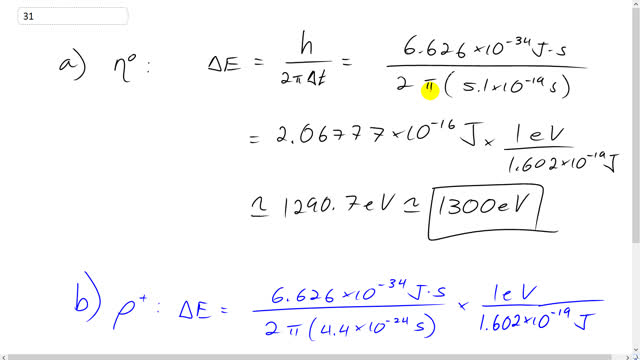 31
a) η⁰ : ΔE = h / 2πΔt = 6.626×10⁻³⁴ J·s / 2π(5.1×10⁻¹⁹ s)
= 2.06777×10⁻¹⁶ J × 1eV / 1.602×10⁻¹⁹ J
≃ 1290.7 eV ≃ 1300 eV
b) ρ⁺ : ΔE = 6.626×10⁻³⁴ J·s / 2π(4.4×10⁻²⁴ s) × 1eV / 1.602×10⁻¹⁹ J